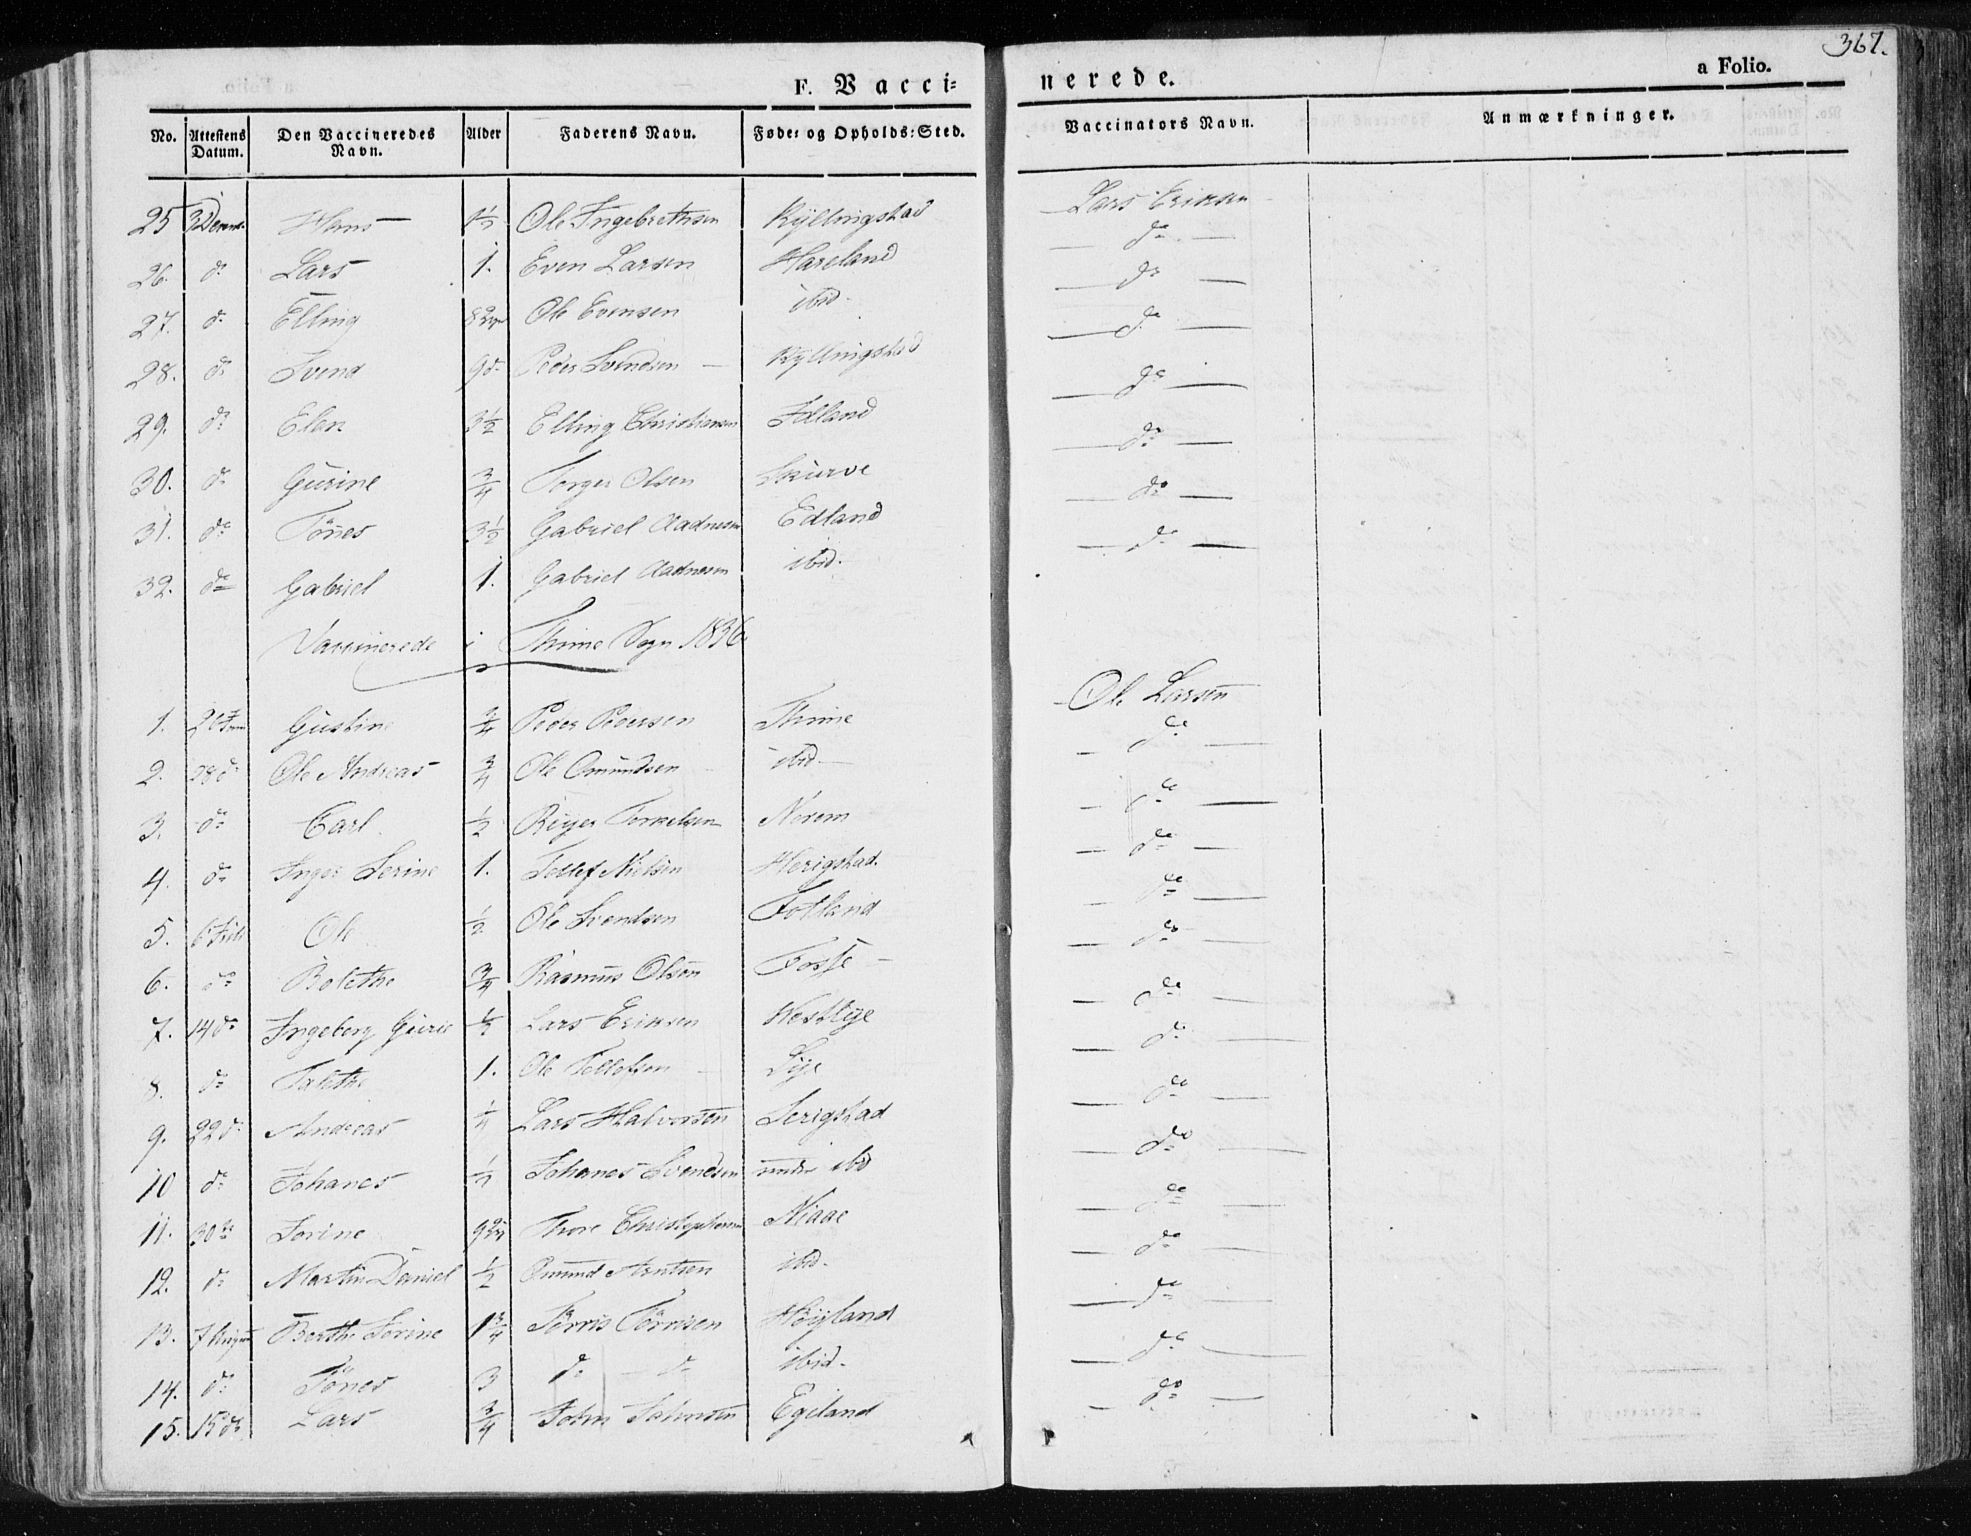 367.
F. Vacci= nerede. a Folio.
No. | Attestens Datum. | Den Vaccineredes Navn. | Alder | Faderens Navn. | Føde= og Opholds=Sted. | Vaccinators Navn. | Anmærkninger.
25 | Hans | 1½ | Ole Ingebrethsen | Kyllingstad | Lars Eriksen
26. | do | Lars | 1. | Even Larsen | Hareland | do
27. | do | Elling | Ole Evensen | ibid. | do
28. | do | Svend | 9 do | Peder Svendsen | Kyllingstad | do
29. | do | Elen | 3½ | Elling Christiansen | Edland | do
30. | do | Gurine | ¾ | Torger Olsen | Skurve | do
31. | do | Tönes | 3½ | Gabriel Aadnesen | Edland | do
32. | do | Gabriel | 1. | Gabriel Aadnesen | ibid. | do
Vaccinerede i Thime Sogn 1836
1. | Gustine | ¾ | Peder Pedersen | Thime | Ole Larsen
2. | 28 do | Ole Andreas | ¾ | Ole Omundsen | ibid | do
3. | do | Carl | ½ | Reyer Torkelsen | Norem | do
4. | do | Inger Serine | 1. | Tollef Nielsen | Herigstad. | do
5. | Ole | ½ | Ole Svendsen | Fotland | do
6. | do | Bolethe | ¾ | Rasmus Olsen | Fosse | do
7. | 14 do | Ingeborg Gurie | ½ | Lars Eriksen | Westlye | do
8. | do | Talethe | 1. | Ole Tollefsen | Lye | do
9. | 22 do | Andreas | ¼ | Lars Halvorsen | Serigstad | do
10 | do | Johanes | ½ | Johanes Svendsen | under ibid | do
11. | 30 do | Sorine | Thore Christophersen | Niaae | do
12. | do | Martin Daniel | ½ | Omund Arntsen | ibid. | do
13. | 7 August | Berthe Sorine | 1¾ | Tørris Tørrisen | Høyland | do
14. | do | Tönes | 3 | do do | ibid. | do
15. | 15 do | Lars | ¾ | John Salvesen | Egeland | do